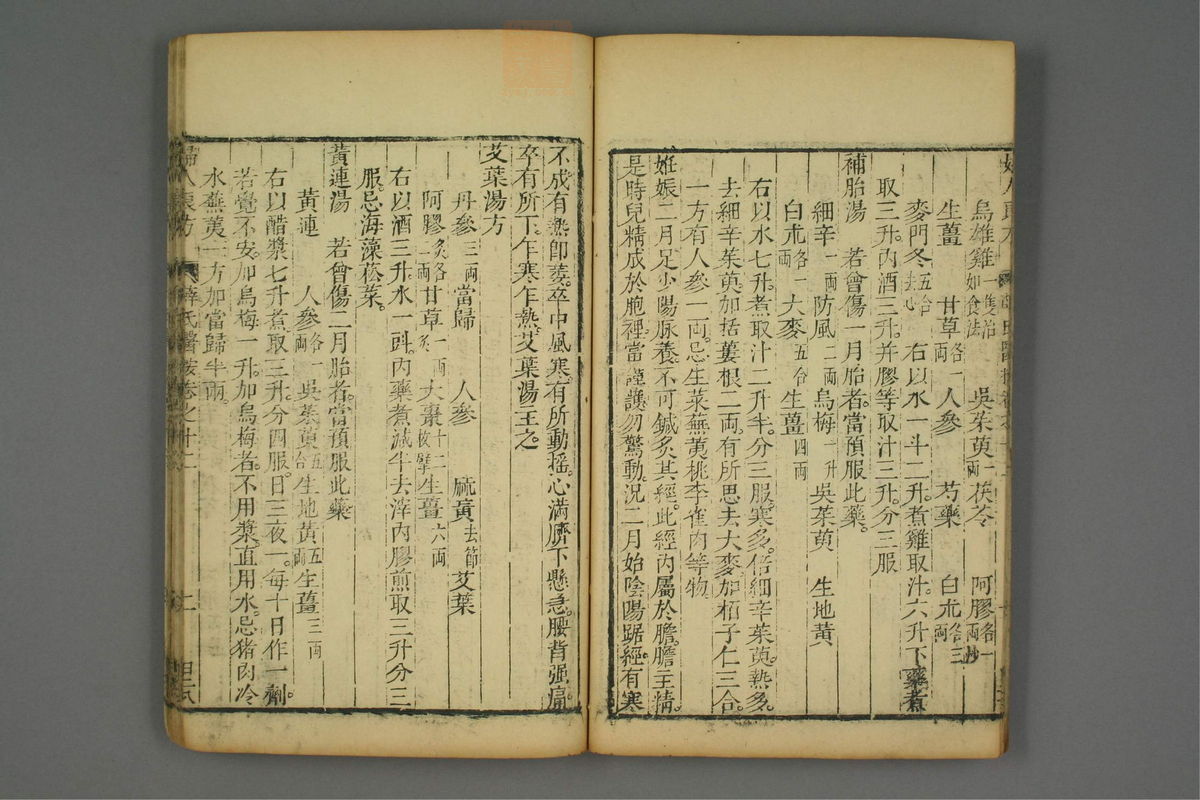 烏雄雞一隻治如食法 吳茱萸一兩 茯苓 阿膠各一兩炒
生薑 甘草各一兩 人參 芍藥 白朮各三兩
麥門冬五合去心 右以水一斗二升煮雞取汁六升下藥煮
取三升內酒三升并膠等取汁三升分三服
補胎湯 若曾傷一月胎者當預服此藥
細辛一兩 防風二兩 烏梅一升 吳茱萸 生地黃
白朮各一兩 大麥五合 生薑四兩
右以水七升煮取汁二升半分三服寒多倍細辛茱萸熱多
去細辛茱萸加括蔞根二兩有所思去大麥加栢子仁三合
一方有人參一兩忌生菜蕪荑桃李雀肉等物
姙娠二月足少陽脉養不可鍼灸其經此經內屬於膽膽主精
是時兒精成於胞裡當謹護勿驚動況二月始陰陽踞經有寒
不成有熱即萎卒中風寒有所動搖心滿臍下懸急腰背强痛
卒有所下乍寒乍熱艾葉湯主之
艾葉湯方
丹參三兩 當歸 人參 麻黃去節 艾葉
阿膠炙各二兩 甘草一兩炙 大棗十二枚擘 生薑六兩
右以酒三升水一斗內藥煮減半去滓內膠煎取三升分三
服忌海藻菘菜
黃連湯 若曾傷二月胎者當預服此藥
黃連 人參各一兩 吳茱萸五合 生地黃五兩 生薑三兩
右以醋漿七升煮取三升分四服日三夜一每十日作一劑
若覺不安加烏梅一升加烏梅者不用漿直用水忌猪肉冷
水蕪荑一方加當歸半兩
婦人良方 薛氏醫按卷之十二